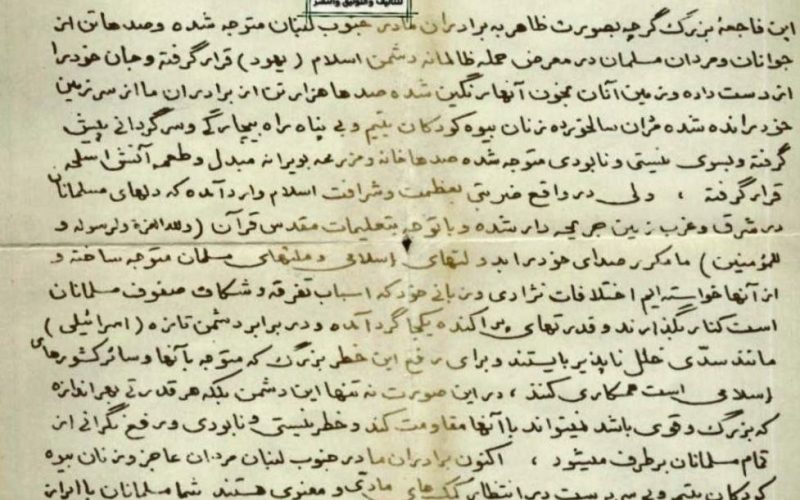 للتأليف والتوثيق والنشر
این فاجعهٔ بزرگ گرچه بصورت ظاهر به برادران ما در جنوب لبنان متوجه شده و صدها تن از
جوانان و مردان مسلمان در معرض حمله ظالمانه دشمن اسلام (یهود) قرار گرفته و جان خود را
از دست داده و زمین آنان بخون آنها رنگین شده صدها هزار تن از برادران ما از سرزمین
خود رانده شده زنان سالخورده زنان بیوه کودکان یتیم و بی پناه راه بیچارگی و سرگردانی پیش
گرفته و بسوی نیستی و نابودی متوجه شده صدها خانه و مزرعه بویرانه مبدل و طعمه آتش اسلحه
قرار گرفته ، ولی در واقع ضربتی بعظمت و شرافت اسلام وارد آمده که دلهای مسلمانان
در شرق و غرب زمین جریحه دار شده و با توجه بتعلیمات مقدس قرآن (ولله العزة ولرسوله و
للمؤمنین) ما مکرر صدای خود را به دولتهای اسلامی و ملتهای مسلمان متوجه ساخته و
از آنها خواسته ایم اختلافات نژادی و زبانی خود که اسباب تفرقه و شکاف صفوف مسلمانان
است کنار بگذارند و قدرتهای پراکنده یکجا گرد آمده و در برابر دشمن تازه (اسرائیلی)
مانند سدّی خلل ناپذیر بایستند و برای رفع این خطر بزرگ که متوجه به آنها و سائر کشورهای
اسلامی است همکاری کنند ، در این صورت نه تنها این دشمن بلکه هر قدرتی بهر اندازه
که بزرگ و قوی باشد نمیتواند با آنها مقاومت کند و خطر نیستی و نابودی و رفع نگرانی از
تمام مسلمانان برطرف میشود ، اکنون برادران ما در جنوب لبنان مردان عاجز و زنان بیوه
کودکان یتیم و بی سرپرست در انتظار کمک های مادّی و معنوی هستند شما مسلمانان با ایران